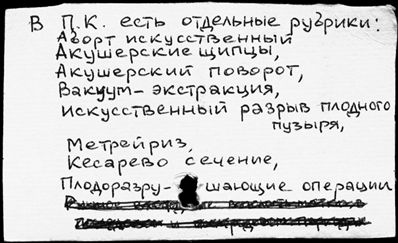 В П.К. есть отдельные рубрики:
Аборт искусственный
Акушерские щипцы,
Акушерский поворот,
Вакуум-экстракция,
искусственный разрыв плодного
пузыря,
Метрейриз,
Кесарево сечение,
Плодоразру-шающие операции